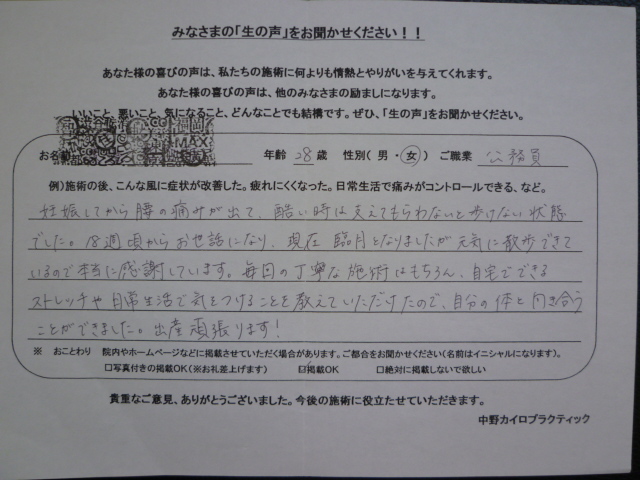 みなさまの「生の声」をお聞かせください！！
あなた様の喜びの声は、私たちの施術に何よりも情熱とやりがいを与えてくれます。
あなた様の喜びの声は、他のみなさまの励ましになります。
いいこと、悪いこと、気になること、どんなことでも結構です。ぜひ、「生の声」をお聞かせください。
お名前 年齢 28 歳 性別（ 男 ・ 女 ） ご職業 公務員
例）施術の後、こんな風に症状が改善した。疲れにくくなった。日常生活で痛みがコントロールできる、など。
妊娠してから腰の痛みが出て、酷い時は支えてもらわないと歩けない状態
でした。18週頃からお世話になり、現在臨月となりましたが元気に散歩できて
いるので本当に感謝しています。毎回の丁寧な施術はもちろん、自宅でできる
ストレッチや日常生活で気をつけることを教えていただけたので、自分の体と向き合う
ことができました。出産頑張ります！
※ おことわり 院内やホームページなどに掲載させていただく場合があります。ご都合をお聞かせください（名前はイニシャルになります）。
□写真付きの掲載OK（※お礼差上げます） ☑掲載OK □絶対に掲載しないで欲しい
貴重なご意見、ありがとうございました。今後の施術に役立たせていただきます。
中野カイロプラクティック